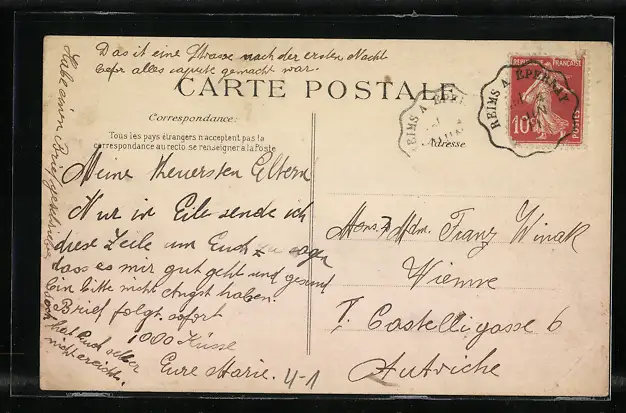 Das it eine Strasse nach der ersten Nacht
befor alles caputt gemacht war.
CARTE POSTALE
Correspondance:
Tous les pays étrangers n'acceptent pas la
correspondance au recto se renseigner à la Poste
Adresse
RÉPUBLIQUE FRANÇAISE
10c
POSTES
REIMS A EPERNAY
REIMS A EPER
Meine theuersten Eltern
Nur in Eile sende ich
diese Zeile um Euch zu sagen
dass es mir gut geht und gesund
Ein bitte nicht Angst haben.
Brief folgt sofort
1000 Küsse
Eure Marie.
4-1
Habe einen Brief geschrieben doch
hat Euch selber
nicht erreicht.
Mons. & Mdm. Franz Winak
Wienne
I. Castelligasse 6
Autriche